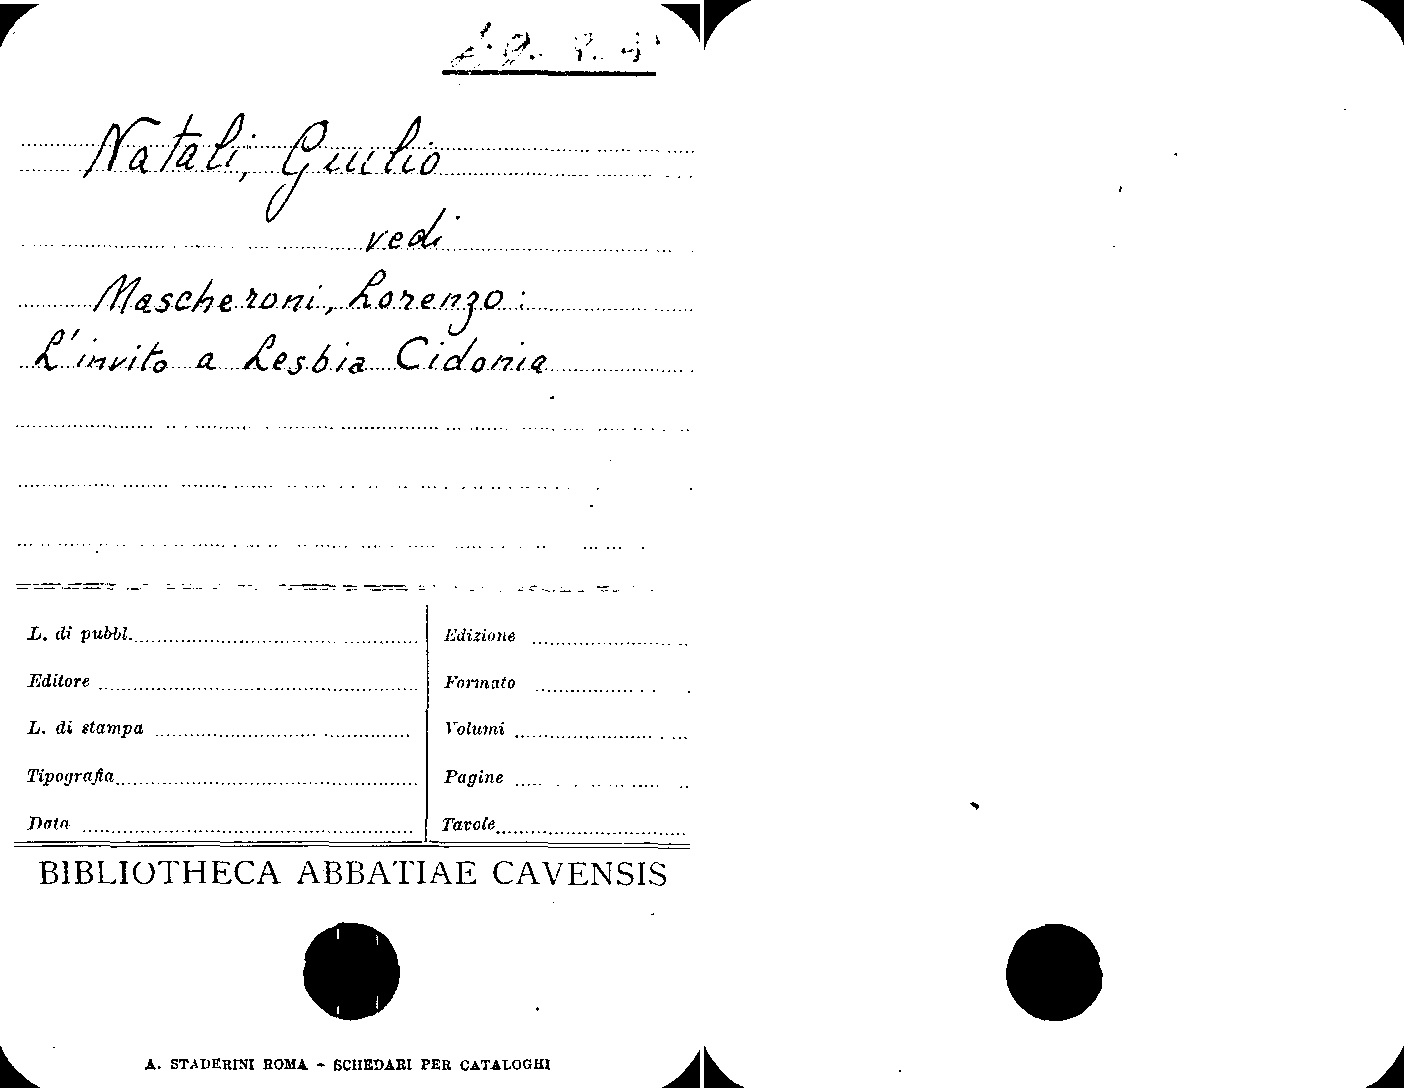 Natali, Giulio
vedi
Mascheroni, Lorenzo:
L'invito a Lesbia Cidonia
L. di pubbl.
Edizione
Editore
Formato
L. di stampa
Volumi
Tipografia
Pagine
Data
Tavole
BIBLIOTHECA ABBATIAE CAVENSIS
A. STADERINI ROMA - SCHEDARI PER CATALOGHI